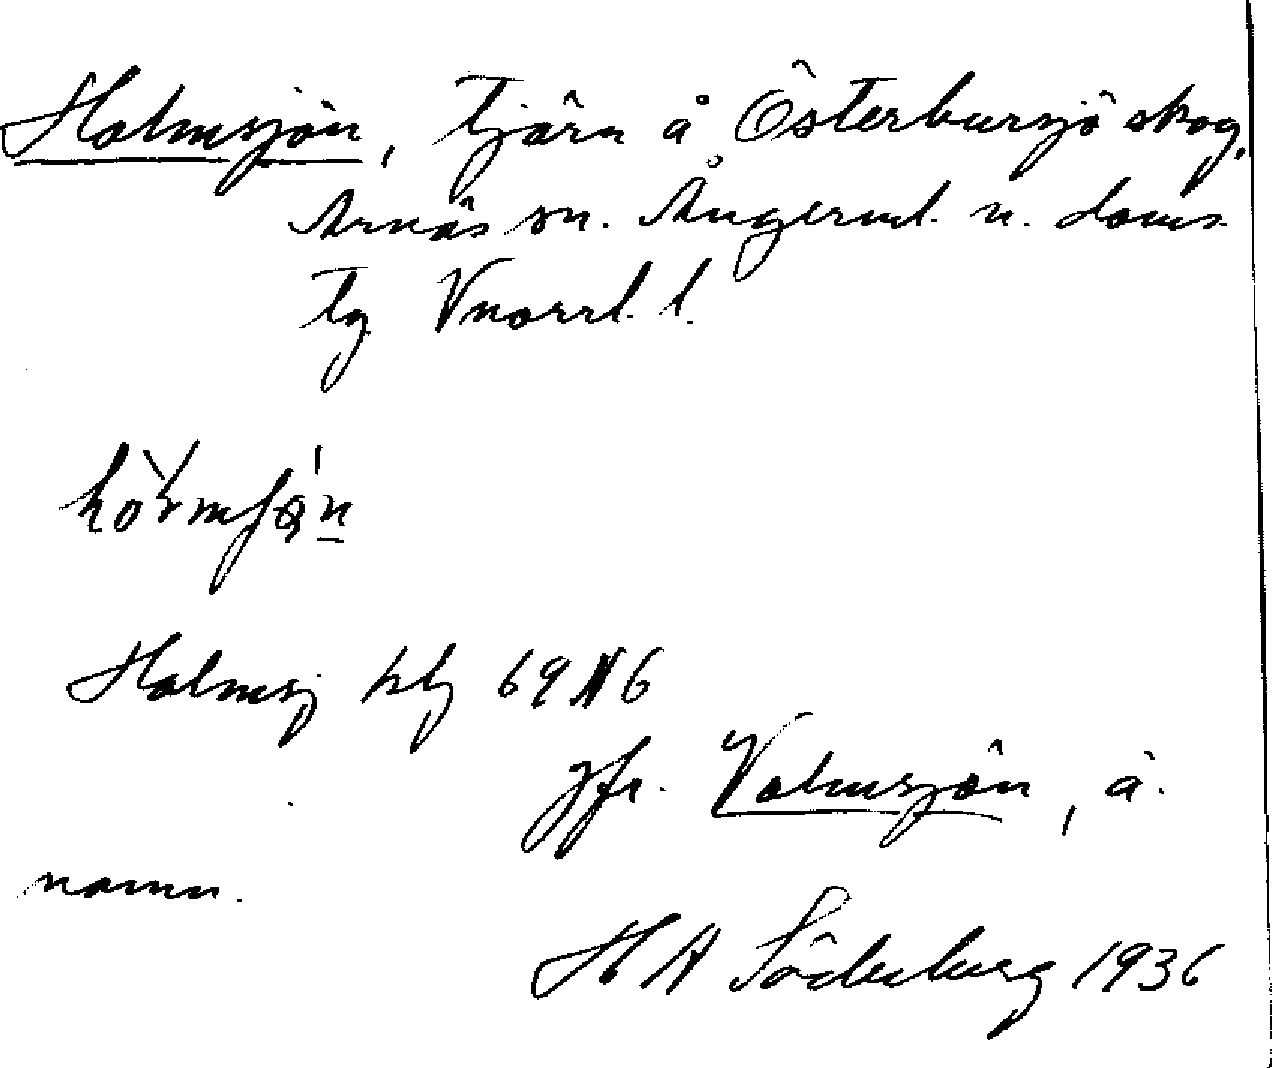 Holmsjön, tjärn å Österbursjö skog,
Arnäs sn. Ångerml. n. doms.
tg Vnorrl. l.
Holmsj hlg 69 N 6
Jfr. Valmsjön, å.
namn.
H A Söderberg 1936